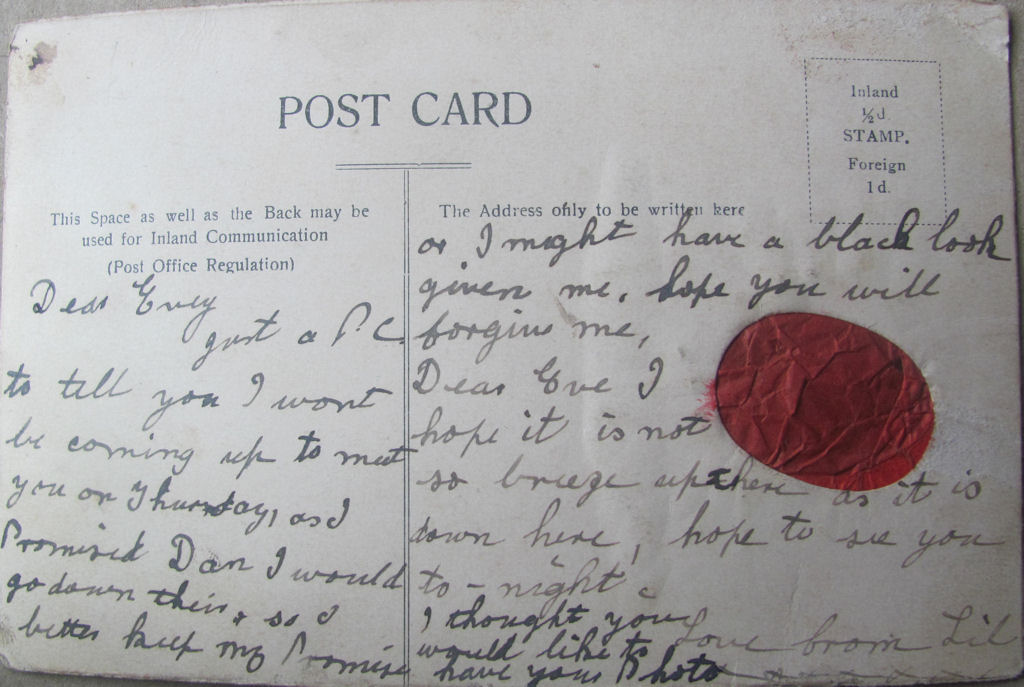 POST CARD
Inland
½d
STAMP.
Foreign
1d.
This Space as well as the Back may be
used for Inland Communication
(Post Office Regulation)
The Address only to be written here
Dear Evey
just a P.C.
to tell you I wont
be coming up to meet
you on Thursday, as I
Promised Dan I would
go down their, so I
better keep my Promise
or I might have a black look
given me, hope you will
forgive me,
Dear Eve I
hope it is not
so breeze up there as it is
down here, hope to see you
to-night
Love from Lil
I thought you
would like to
have your Photo